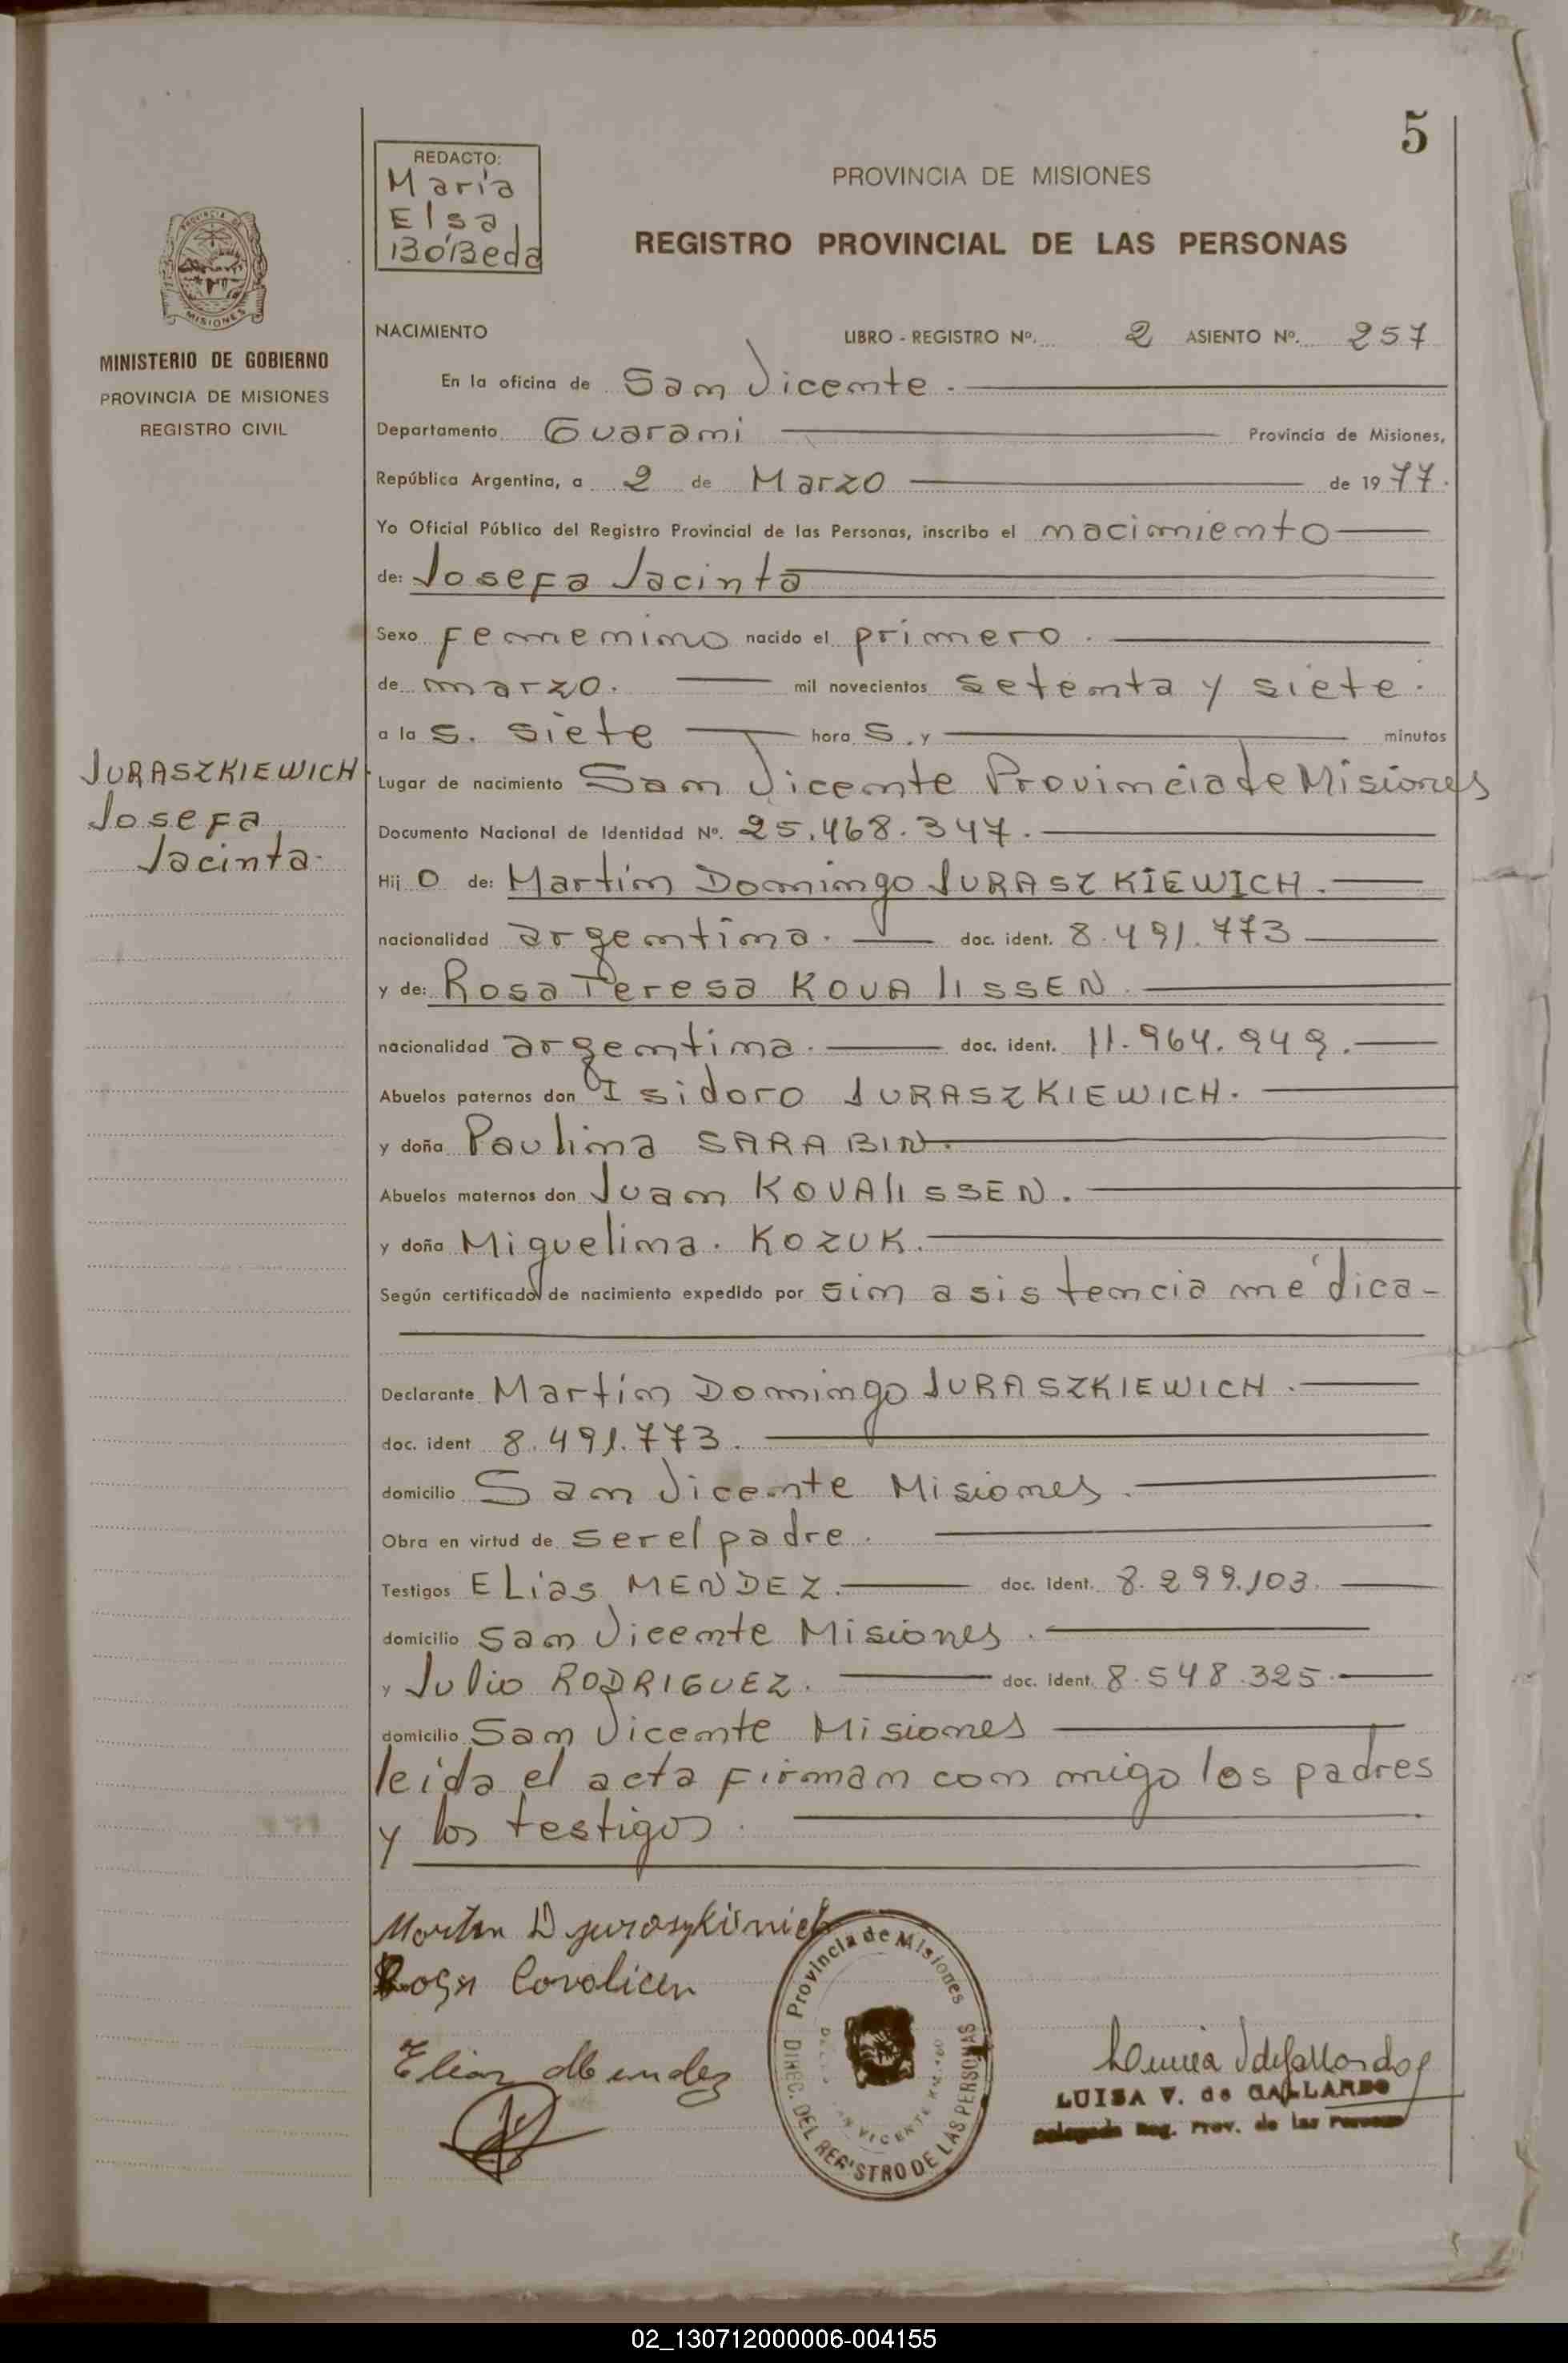 5
REDACTO:
María
Elsa
BóBeda
PROVINCIA DE MISIONES
REGISTRO PROVINCIAL DE LAS PERSONAS
MISIONES
MINISTERIO DE GOBIERNO
PROVINCIA DE MISIONES
REGISTRO CIVIL
JURASZKIEWICH
Josefa
Jacinta.
NACIMIENTO LIBRO - REGISTRO Nº. 2 ASIENTO Nº. 257
En la oficina de San Vicente.
Departamento Guarani Provincia de Misiones,
República Argentina, a 2 de Marzo de 1977.
Yo Oficial Público del Registro Provincial de las Personas, inscribo el nacimiento
de: Josefa Jacinta
Sexo femenino nacido el primero.
de marzo. mil novecientos setenta y siete.
a la s. siete hora s. y minutos
Lugar de nacimiento San Vicente Provincia de Misiones
Documento Nacional de Identidad Nº. 25.468.347.
Hij o de: Martín Domingo JURASZKIEWICH.
nacionalidad argentina. doc. ident. 8.491.773
y de: Rosa Teresa KOVALISSEN.
nacionalidad argentina. doc. ident. 11.964.949.
Abuelos paternos don Isidoro JURASZKIEWICH.
y doña Paulina SARABIN.
Abuelos maternos don Juan KOVALISSEN.
y doña Miguelina. KOZUK.
Según certificado de nacimiento expedido por sin asistencia médica-
Declarante Martín Domingo JURASZKIEWICH.
doc. ident 8.491.773.
domicilio San Vicente Misiones.
Obra en virtud de ser el padre.
Testigos ELias MENDEZ. doc. ident. 8.299.103.
domicilio San Vicente Misiones.
y Julio RODRIGUEZ. doc. ident. 8.548.325.
domicilio San Vicente Misiones
leída el acta firman con migo los padres
y los testigos.
Martin D juraszkievich
Rosa Covalicen
Elias Mendez
Provincia de Misiones
DIREC. DEL REGISTRO DE LAS PERSONAS
SAN VICENTE
LUISA V. de GALLARDO
Delegada Reg. Prov. de las Personas
02_130712000006-004155